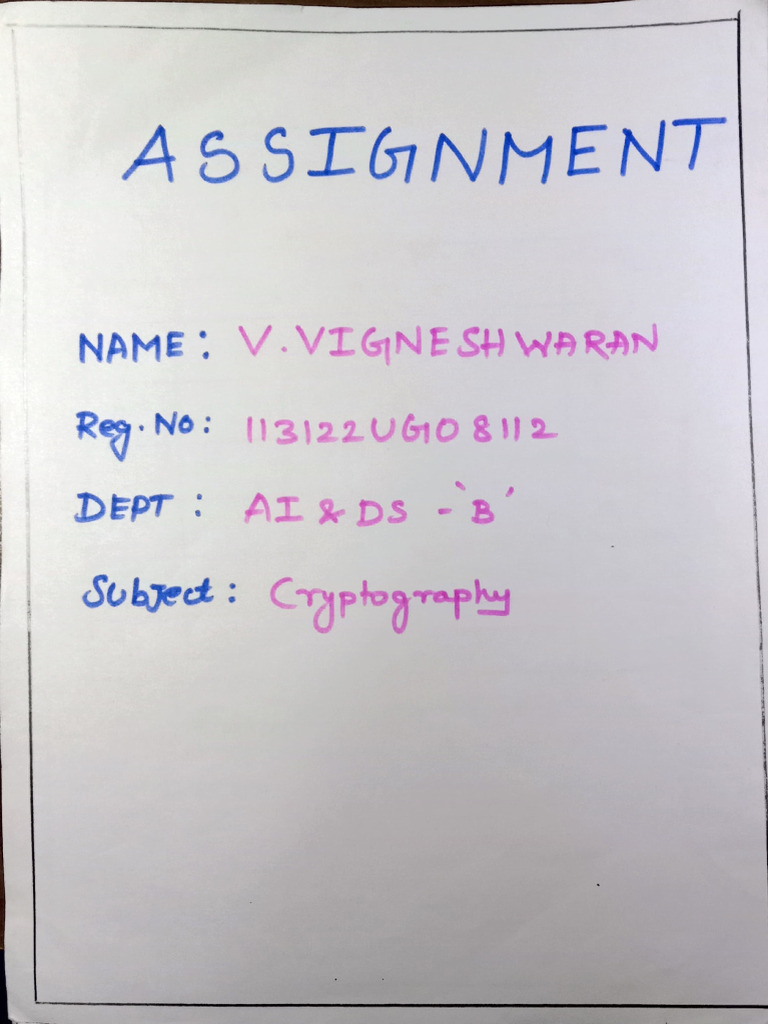 ASSIGNMENT
NAME: V.VIGNESHWARAN
Reg.No: 113122UG08112
DEPT: AI & DS - 'B'
Subject: Cryptography